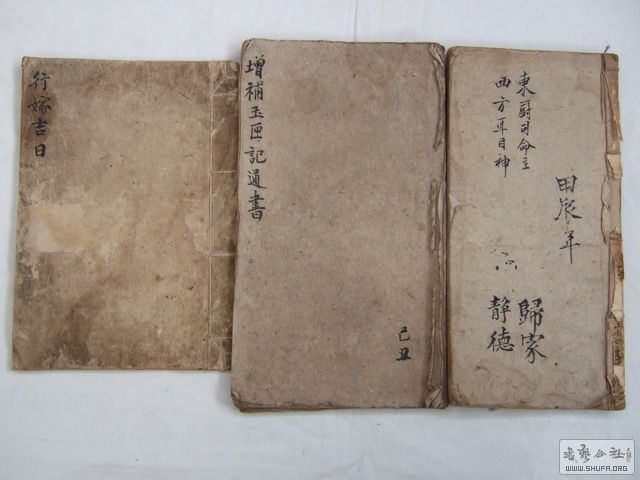 行嫁吉日
增補玉匣記通書
己丑
東厨司命主
西方耳目神
田辰年
歸家
靜德
书艺公社
WWW.SHUFA.ORG